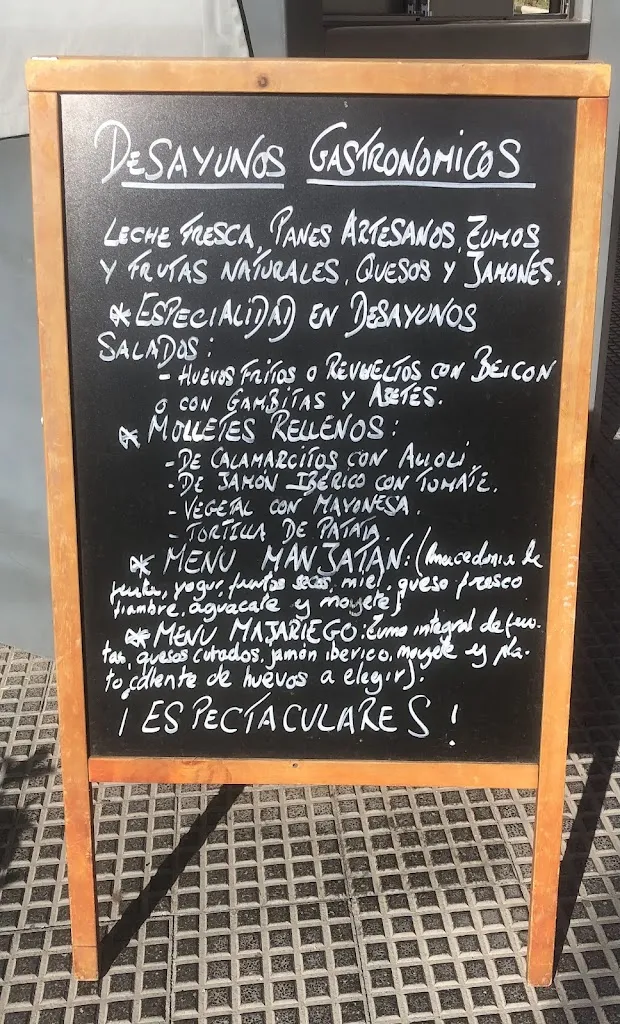 DESAYUNOS GASTRONOMICOS
LECHE FRESCA, PANES ARTESANOS, ZUMOS
Y FRUTAS NATURALES, QUESOS Y JAMONES.
* ESPECIALIDAD EN DESAYUNOS
SALADOS:
- HUEVOS FRITOS O REVUELTOS CON BEICON
O CON GAMBITAS Y AJETES.
* MOLLETES RELLENOS:
- DE CALAMARCITOS CON ALIOLI
- DE JAMÓN IBÉRICO CON TOMATE.
- VEGETAL CON MAYONESA.
- TORTILLA DE PATATA.
* MENU MANJATAN: (macedonia de
fruta, yogur, frutos secos, miel, queso fresco
fiambre, aguacate y moyete)
* MENU MAJARIEGO: Zumo integral de fru-
tas, quesos curados, jamón iberico, moyete y pla-
to caliente de huevos a elegir).
¡ESPECTACULARES!